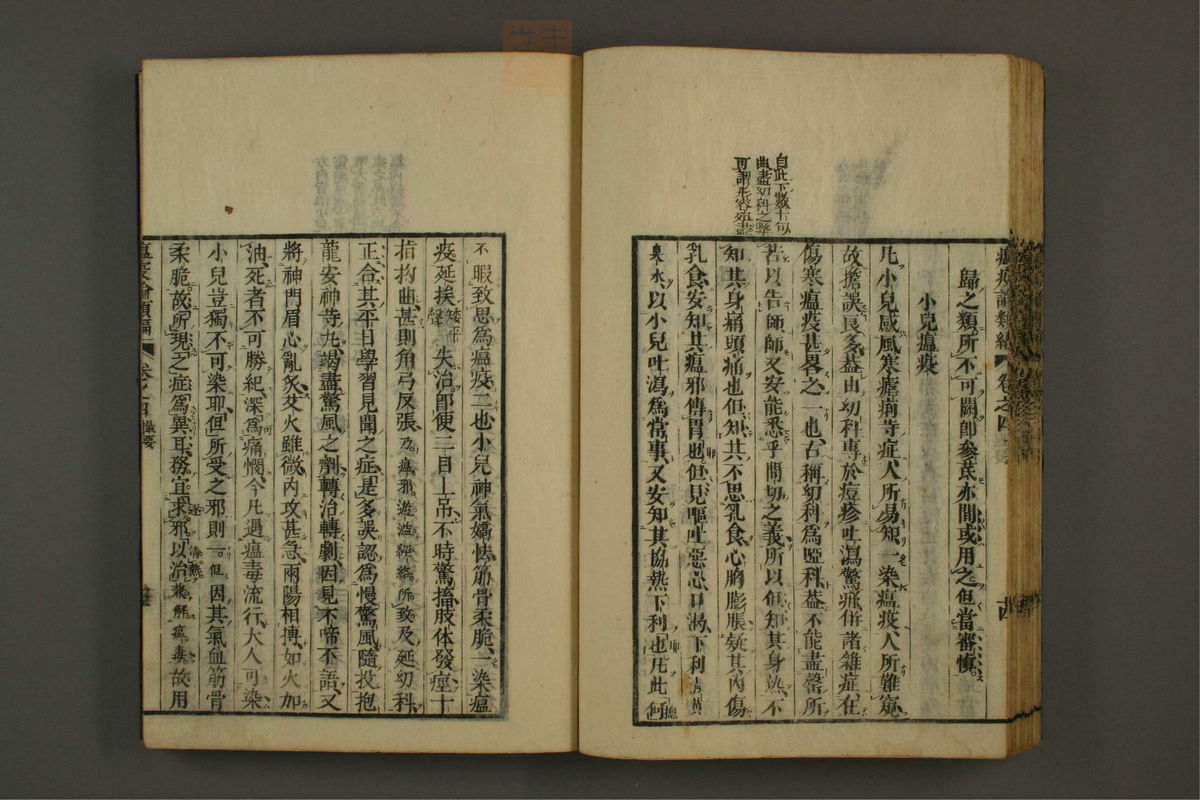 自此下數十句
曲盡幼科之弊
可謂形容殆盡
瘟疫論類編 卷之四
歸之類所不可闕即參芪亦間或用之但當審慎
小兒瘟疫
凡小兒感風寒瘧痢等症人所易知一染瘟疫人所難窺
故擔誤良多葢由幼科專於痘疹吐瀉驚疳併諸雜症在
傷寒瘟疫甚畧之一也古稱幼科為啞科葢不能盡罄所
苦以告師師又安能悉乎問切之義所以但知其身熱不
知其身痛頭痛也但知其不思乳食心胸膨脹疑其內傷
乳食安知其瘟邪傳胃也但見嘔吐惡心口渴下利清黃
泉水以小兒吐瀉為常事又安知其協熱下利也凡此何
不暇致思為瘟疫二也小兒神氣嬌怯筋骨柔脆一染瘟
疫延挨矮平聲失治即便二目上吊不時驚搐肢体發痙十
指拘曲甚則角弓反張乃瘟邪遊溢經絡所致及延幼科
正合其平日學習見聞之症是多誤認為慢驚風隨投抱
龍安神等丸竭盡驚風之劑轉治轉劇因見不啼不語又
將神門眉心亂灸艾火雖微內攻甚急兩陽相摶如火加
油死者不可勝紀深為痛憫今凡遇瘟毒流行大人可染
小兒豈獨不可染耶但所受之邪則一但因其氣血筋骨
柔脆故所現之症為異耳務宜求邪以治故用
瘟疫論類編 卷之四 撮要